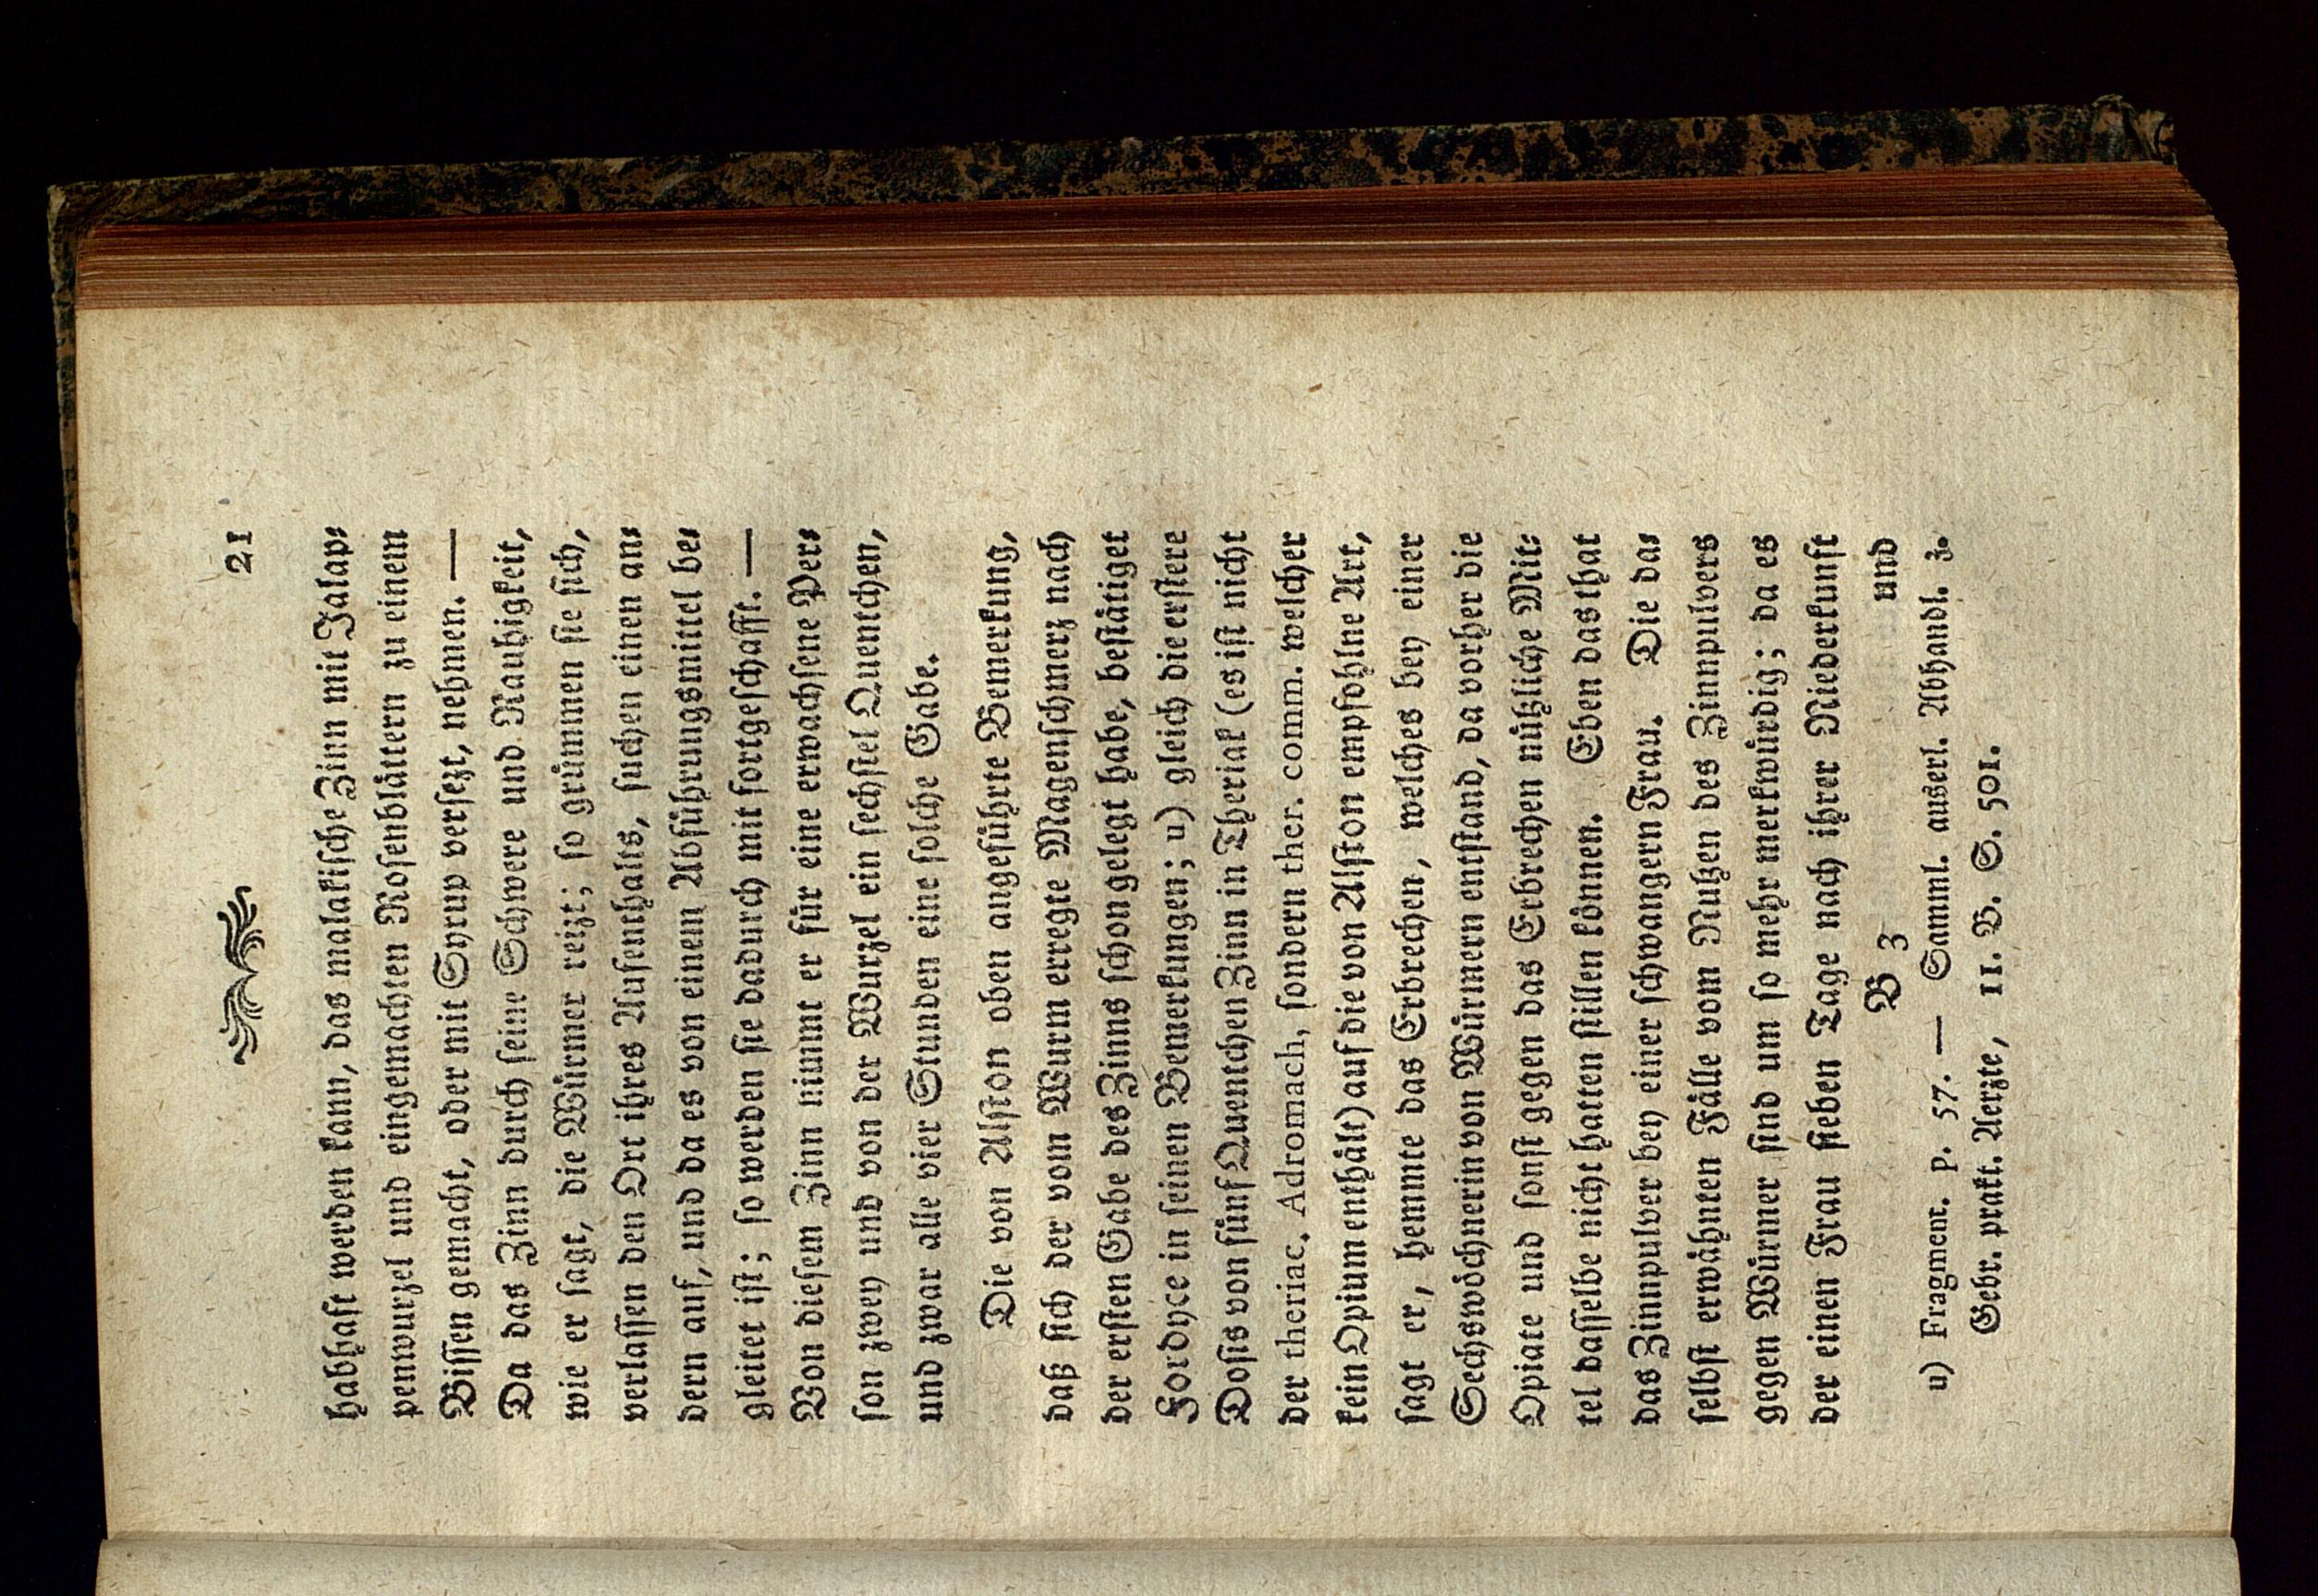 21
habhaft werden kann, das malakische Zinn mit Jalap⸗
penwurzel und eingemachten Rosenblättern zu einem
Bissen gemacht, oder mit Syrup versezt, nehmen. —
Da das Zinn durch seine Schwere und Rauhigkeit,
wie er sagt, die Würmer reizt; so grümmen sie sich,
verlassen den Ort ihres Aufenthalts, suchen einen an⸗
dern auf, und da es von einem Abführungsmittel be⸗
gleitet ist; so werden sie dadurch mit fortgeschafft. —
Von diesem Zinn nimmt er für eine erwachsene Per⸗
son zwey und von der Wurzel ein sechstel Quentchen,
und zwar alle vier Stunden eine solche Gabe.
Die von Alston oben angeführte Bemerkung,
daß sich der vom Wurm erregte Magenschmerz nach
der ersten Gabe des Zinns schon gelegt habe, bestätiget
Fordyce in seinen Bemerkungen; u) gleich die erstere
Dosis von fünf Quentchen Zinn in Theriak (es ist nicht
der theriac. Adromach, sondern ther. comm. welcher
kein Opium enthält) auf die von Alston empfohlne Art,
sagt er, hemmte das Erbrechen, welches bey einer
Sechswöchnerin von Würmern entstand, da vorher die
Opiate und sonst gegen das Erbrechen nützliche Mit⸗
tel dasselbe nicht hatten stillen können. Eben das that
das Zinnpulver bey einer schwangern Frau. Die da⸗
selbst erwähnten Fälle vom Nutzen des Zinnpulvers
gegen Würmer sind um so mehr merkwürdig; da es
der einen Frau sieben Tage nach ihrer Niederkunft
B 3 und
u) Fragment. p. 57. — Samml. auserl. Abhandl. z.
Gebr. prakt. Aerzte, 11. B. S. 501.